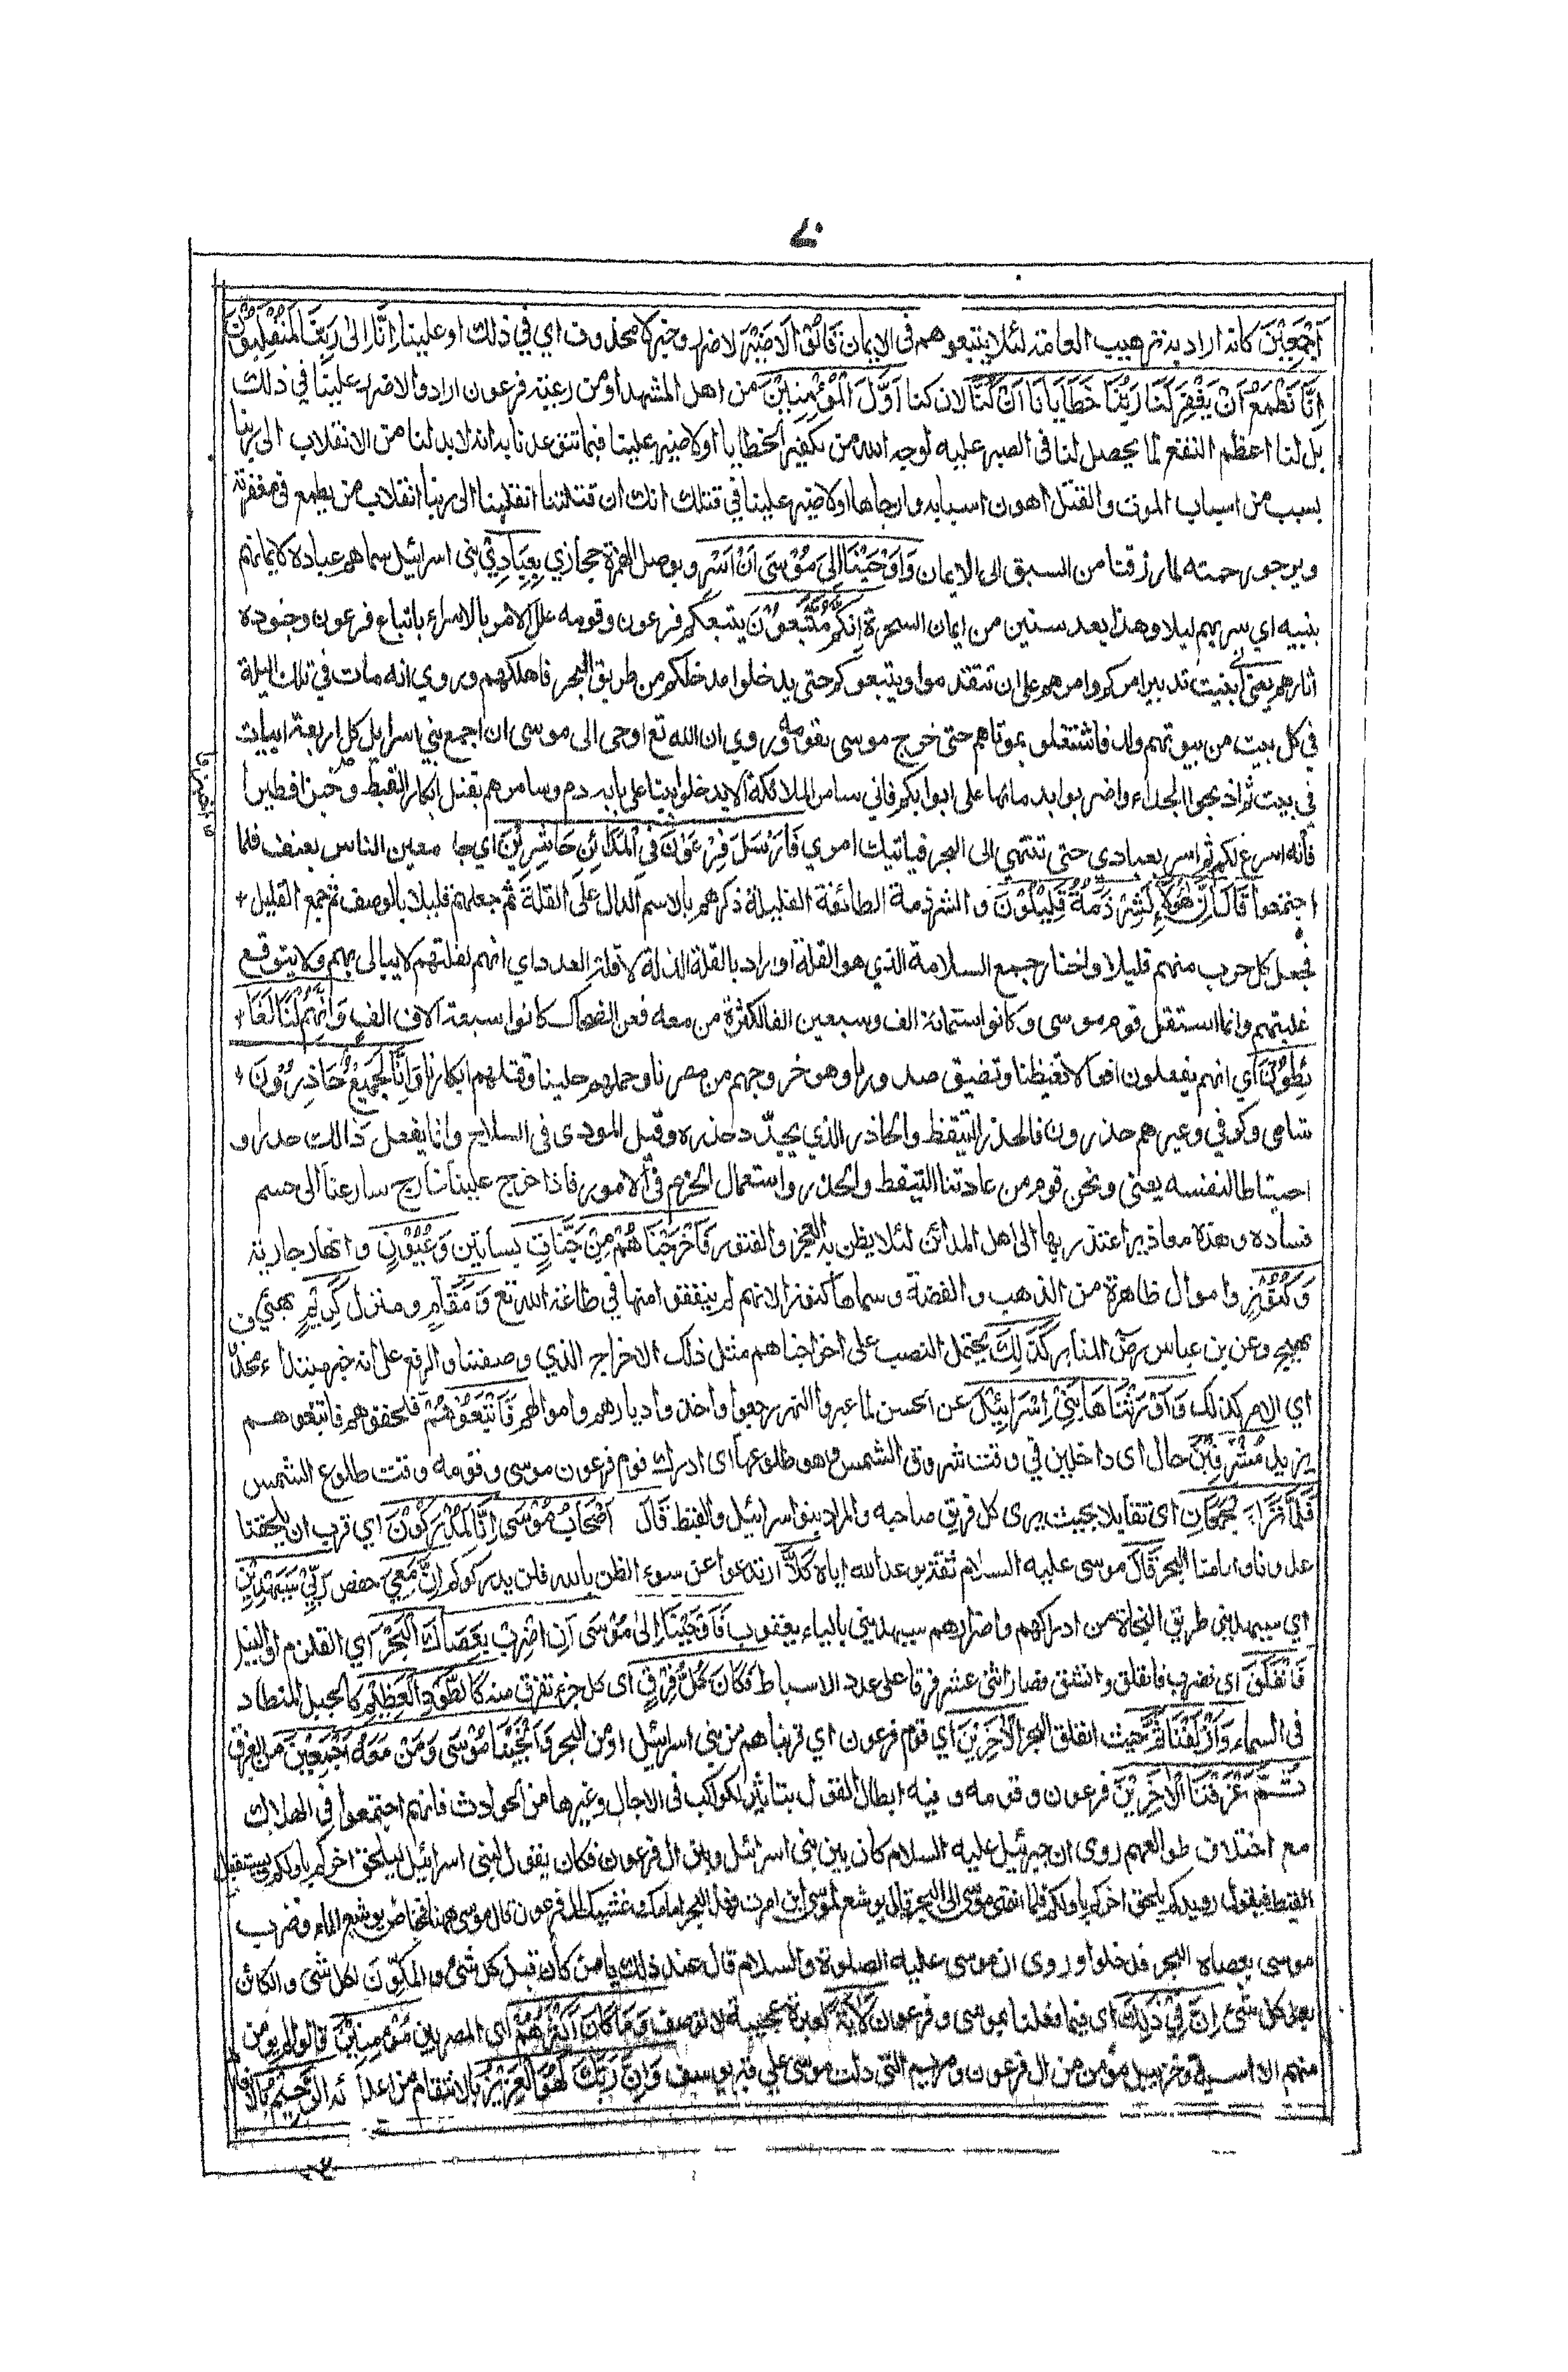 ٧٠
اَجْمَعِيْنَ كانه اراد به ترهيب العامة لئلا يتبعوهم فى الايمان قَالُوْا لَا ضَيْرَ لا ضرر وخبر لا محذوف اي في ذلك او علينا اِنَّا اِلٰى رَبِّنَا لَمُنْقَلِبُوْنَ
اِنَّا نَطْمَعُ اَنْ يَغْفِرَ لَنَا رَبُّنَا خَطَايَانَا اَنْ كُنَّا لان كنا اَوَّلَ الْمُؤْمِنِيْنَ من اهل المشهد او من رعية فرعون ارادوا لا ضرر علينا في ذلك
بل لنا اعظم النفع لما يحصل لنا فى الصبر عليه لوجه الله من تكفير الخطايا او لا ضير علينا فيما تتوعدنا به انه لا بد لنا من الانقلاب الى ربنا
بسبب من اسباب الموت والقتل اهون اسبابه وارجاها او لا ضير علينا في قتلك انك ان قتلتنا انقلبنا الى ربنا انقلاب من يطمع فى مغفرته
ويرجو رحمته لما رزقنا من السبق الى الايمان وَاَوْحَيْنَا اِلٰى مُوْسٰى اَنْ اَسْرِ وبوصل الهمزة حجازي بِعِبَادِيْ بنى اسرائيل سماهم عباده لايمانهم
بنبيه اي سر بهم ليلا وهذا بعد سنين من ايمان السحرة اِنَّكُمْ مُتَّبَعُوْنَ يتبعكم فرعون وقومه علل الامر بالاسراء باتباع فرعون وجنوده
اثارهم يعنى اني بنيت تدبير امركم وامرهم على ان تتقدموا ويتبعوكم حتى يدخلوا مدخلكم من طريق البحر فاهلكهم وروي انه مات في تلك الليلة
فى كل بيت من بيوتهم ولد فاشتغلوا بموتاهم حتى خرج موسى بقومه وروي ان الله تع اوحى الى موسى ان اجمع بني اسرايل كل اربعة ابيات
فى بيت ثم اذبحوا الجداء واضربوا بدمائها على ابوابكم فاني سامر الملائكة الا يدخلوا بيتا على بابه دم وسامرهم بقتل ابكار القبط وخبزا فطيرا
فانه اسرع لكم ثم اسر بعبادى حتى تنتهى الى البحر فياتيك امري فَاَرْسَلَ فِرْعَوْنُ فِي الْمَدَائِنِ حَاشِرِيْنَ اي جامعين الناس بعنف فلما
اجتمعوا قَالَ اِنَّ هٰؤُلَاءِ لَشِرْذِمَةٌ قَلِيْلُوْنَ و الشرذمة الطائفة القليلة ذكرهم بالاسم الدال على القلة ثم جعلهم قليلا بالوصف ثم جمع القليل
فجعل كل حزب منهم قليلا واختار جمع السلامة الذي هو القلة او اراد بالقلة الذلة لا قلة العدد اي انهم لقلتهم لا يبالى بهم ولا يتوقع
غلبتهم وانما استقل قوم موسى وكانوا ستمائة الف وسبعين الفا لكثرة من معه فعن الضحاك كانوا سبعة الاف الف وَاِنَّهُمْ لَنَا لَغَا
ئِظُوْنَ اي انهم يفعلون افعالا تغيظنا وتضيق صدورنا وهو خروجهم من مصرنا وحملهم حلينا وقتلهم ابكارنا وَاِنَّا لَجَمِيْعٌ حَاذِرُوْنَ
شامى وكوفي وغيرهم حذرون فالحذر المتيقظ والحاذر الذي يجدد حذره وقيل المودى فى السلاح وانما يفعل ذالك حذرا و
احتياطا لنفسه يعنى ونحن قوم من عادتنا التيقظ والحذر واستعمال الحزم فى الامور فاذا خرج علينا خارج سارعنا الى حسم
فساده وهذه معاذير اعتذر بها الى اهل المدائن لئلا يظن به العجز والفتور فَاَخْرَجْنَاهُمْ مِنْ جَنَّاتٍ بساتين وَعُيُوْنٍ و انهار جارية
وَكُنُوْزٍ واموال ظاهرة من الذهب والفضة وسماها كنوزا لانهم لم ينفقوا منها في طاعة الله تع وَمَقَامٍ ومنزل كَرِيْمٍ بهي
بهيج وعن بن عباس رض المنابر كَذٰلِكَ يحتمل النصب على اخرجناهم مثل ذلك الاخراج الذي وصفنا والرفع على انه خبر مبتداء محذوف
اي الامر كذلك وَاَوْرَثْنَاهَا بَنِيْ اِسْرَائِيْلَ عن الحسن لما عبروا النهر رجعوا واخذوا ديارهم واموالهم فَاَتْبَعُوْهُمْ فلحقوهم فاتبعوهم
يزيد مُشْرِقِيْنَ حال اى داخلين في وقت شروق الشمس وهو طلوعها اى ادرك قوم فرعون موسى وقومه وقت طلوع الشمس
فَلَمَّا تَرَاءَ الْجَمْعَانِ اى تقابلا بحيث يرى كل فريق صاحبه والمراد بنو اسرائيل والقبط قَالَ اَصْحَابُ مُوْسٰى اِنَّا لَمُدْرَكُوْنَ اي قرب ان يلحقنا
عدونا وامامنا البحر قَالَ موسى عليه السلام ثقة بوعد الله اياه كَلَّا ارتدعوا عن سوء الظن بالله فلن يدركوكم اِنَّ مَعِيَ حفص رَبِّيْ سَيَهْدِيْنِ
اي سيهديني طريق النجاة من ادراكهم واضرارهم سيهديني بالياء يعقوب فَاَوْحَيْنَا اِلٰى مُوْسٰى اَنِ اضْرِبْ بِعَصَاكَ الْبَحْرَ اي القلزم او النيل
فَانْفَلَقَ اى فضرب فانفلق وانشق فصار اثنى عشر فرقا على عدد الاسباط فَكَانَ كُلُّ فِرْقٍ اى كل جزء تفرق منه كَالطَّوْدِ الْعَظِيْمِ كالجبل المنطاد
فى السماء وَاَزْلَفْنَا ثَمَّ حيث انفلق البحر الْاٰخَرِيْنَ اي قوم فرعون اي قربناهم من بني اسرائيل او من البحر وَاَنْجَيْنَا مُوْسٰى وَمَنْ مَعَهُ اَجْمَعِيْنَ من الغرق
ثُمَّ اَغْرَقْنَا الْاٰخَرِيْنَ فرعون وقومه و فيه ابطال القول بتاثير الكواكب فى الاجال وغيرها من الحوادث فانهم اجتمعوا في الهلاك
مع اختلاف طوالعهم روى ان جبرئيل عليه السلام كان بين بنى اسرائيل وبين ال فرعون فكان يقول لبنى اسرائيل ليلحق اخركم باولكم ويستقبل
القبط فيقول رويدكم يلحق اخركم باولكم فلما انتهى موسى الى البحر قال يوشع لموسى اين امرت فهذا البحر امامك وغشيك ال فرعون قال موسى ههنا فخاض يوشع الماء وضرب
موسى بعصاه البحر فدخلوا وروى ان موسى عليه الصلوة والسلام قال عند ذلك يا من كان قبل كل شئ والمكون لكل شئ والكائن
بعد كل شئ اِنَّ فِيْ ذٰلِكَ اى فيما فعلنا بموسى وفرعون لَاٰيَةً لعبرة عجيبة لا توصف وَمَا كَانَ اَكْثَرُهُمْ اى المصريين مُؤْمِنِيْنَ قالوا لم يومن
منهم الا اسية وحزبيل مؤمن من ال فرعون ومريم التى دلت موسى علي قبر يوسف وَاِنَّ رَبَّكَ لَهُوَ الْعَزِيْزُ بالانتقام من اعدائه الرَّحِيْمُ